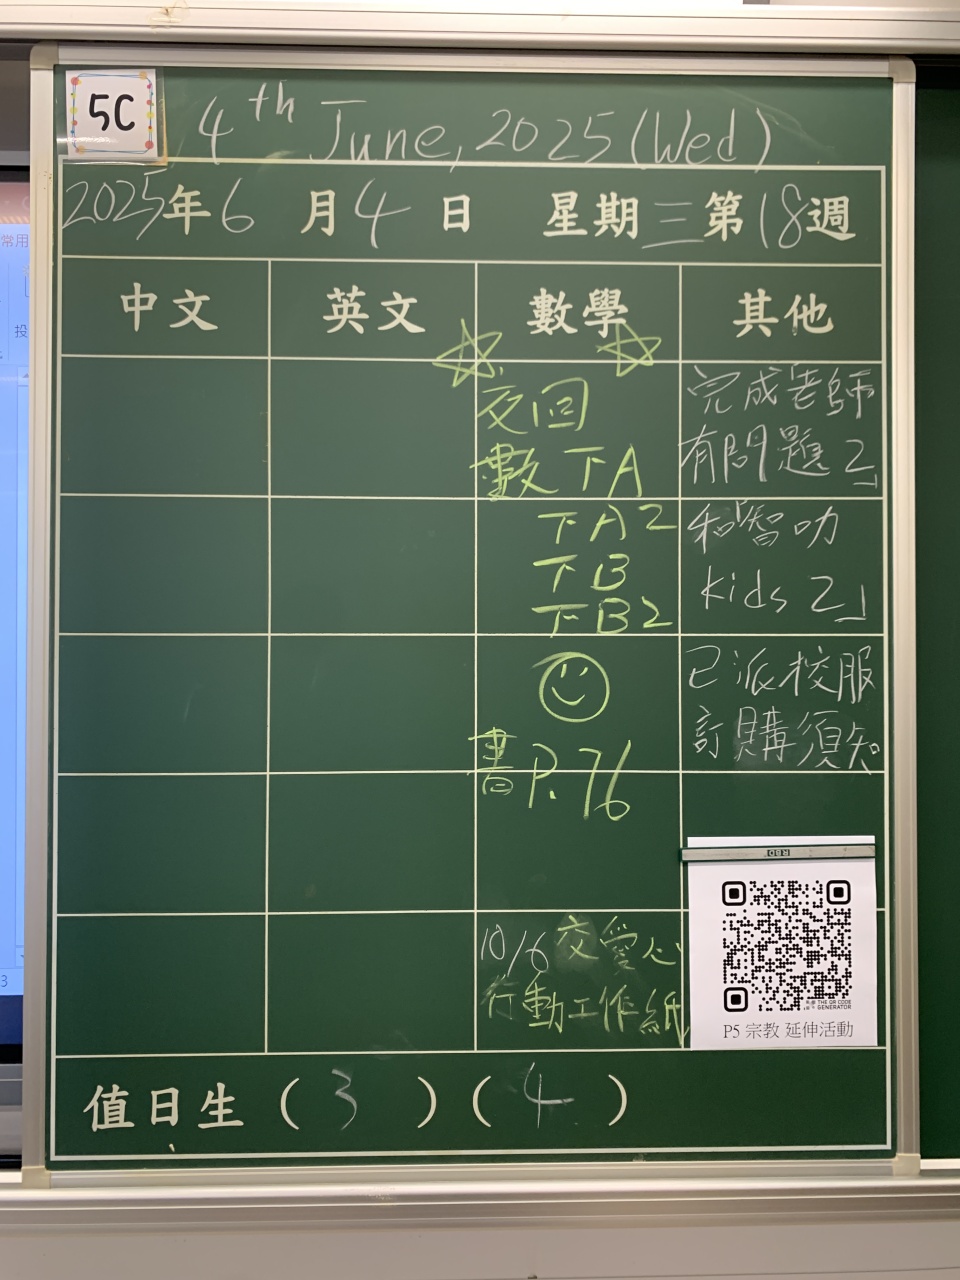 5C
4th June, 2025 (Wed)
2025年6月4日 星期三第18週
中文 英文 數學 其他
交回
數下A
下A2
下B
下B2
書P.76
10/6交愛心
行動工作紙
完成「老師
有問題2」
和「智叻
kids 2」
已派校服
訂購須知
RBD
THE QR CODE
GENERATOR
P5 宗教 延伸活動
值日生(3)(4)
常用
投
3